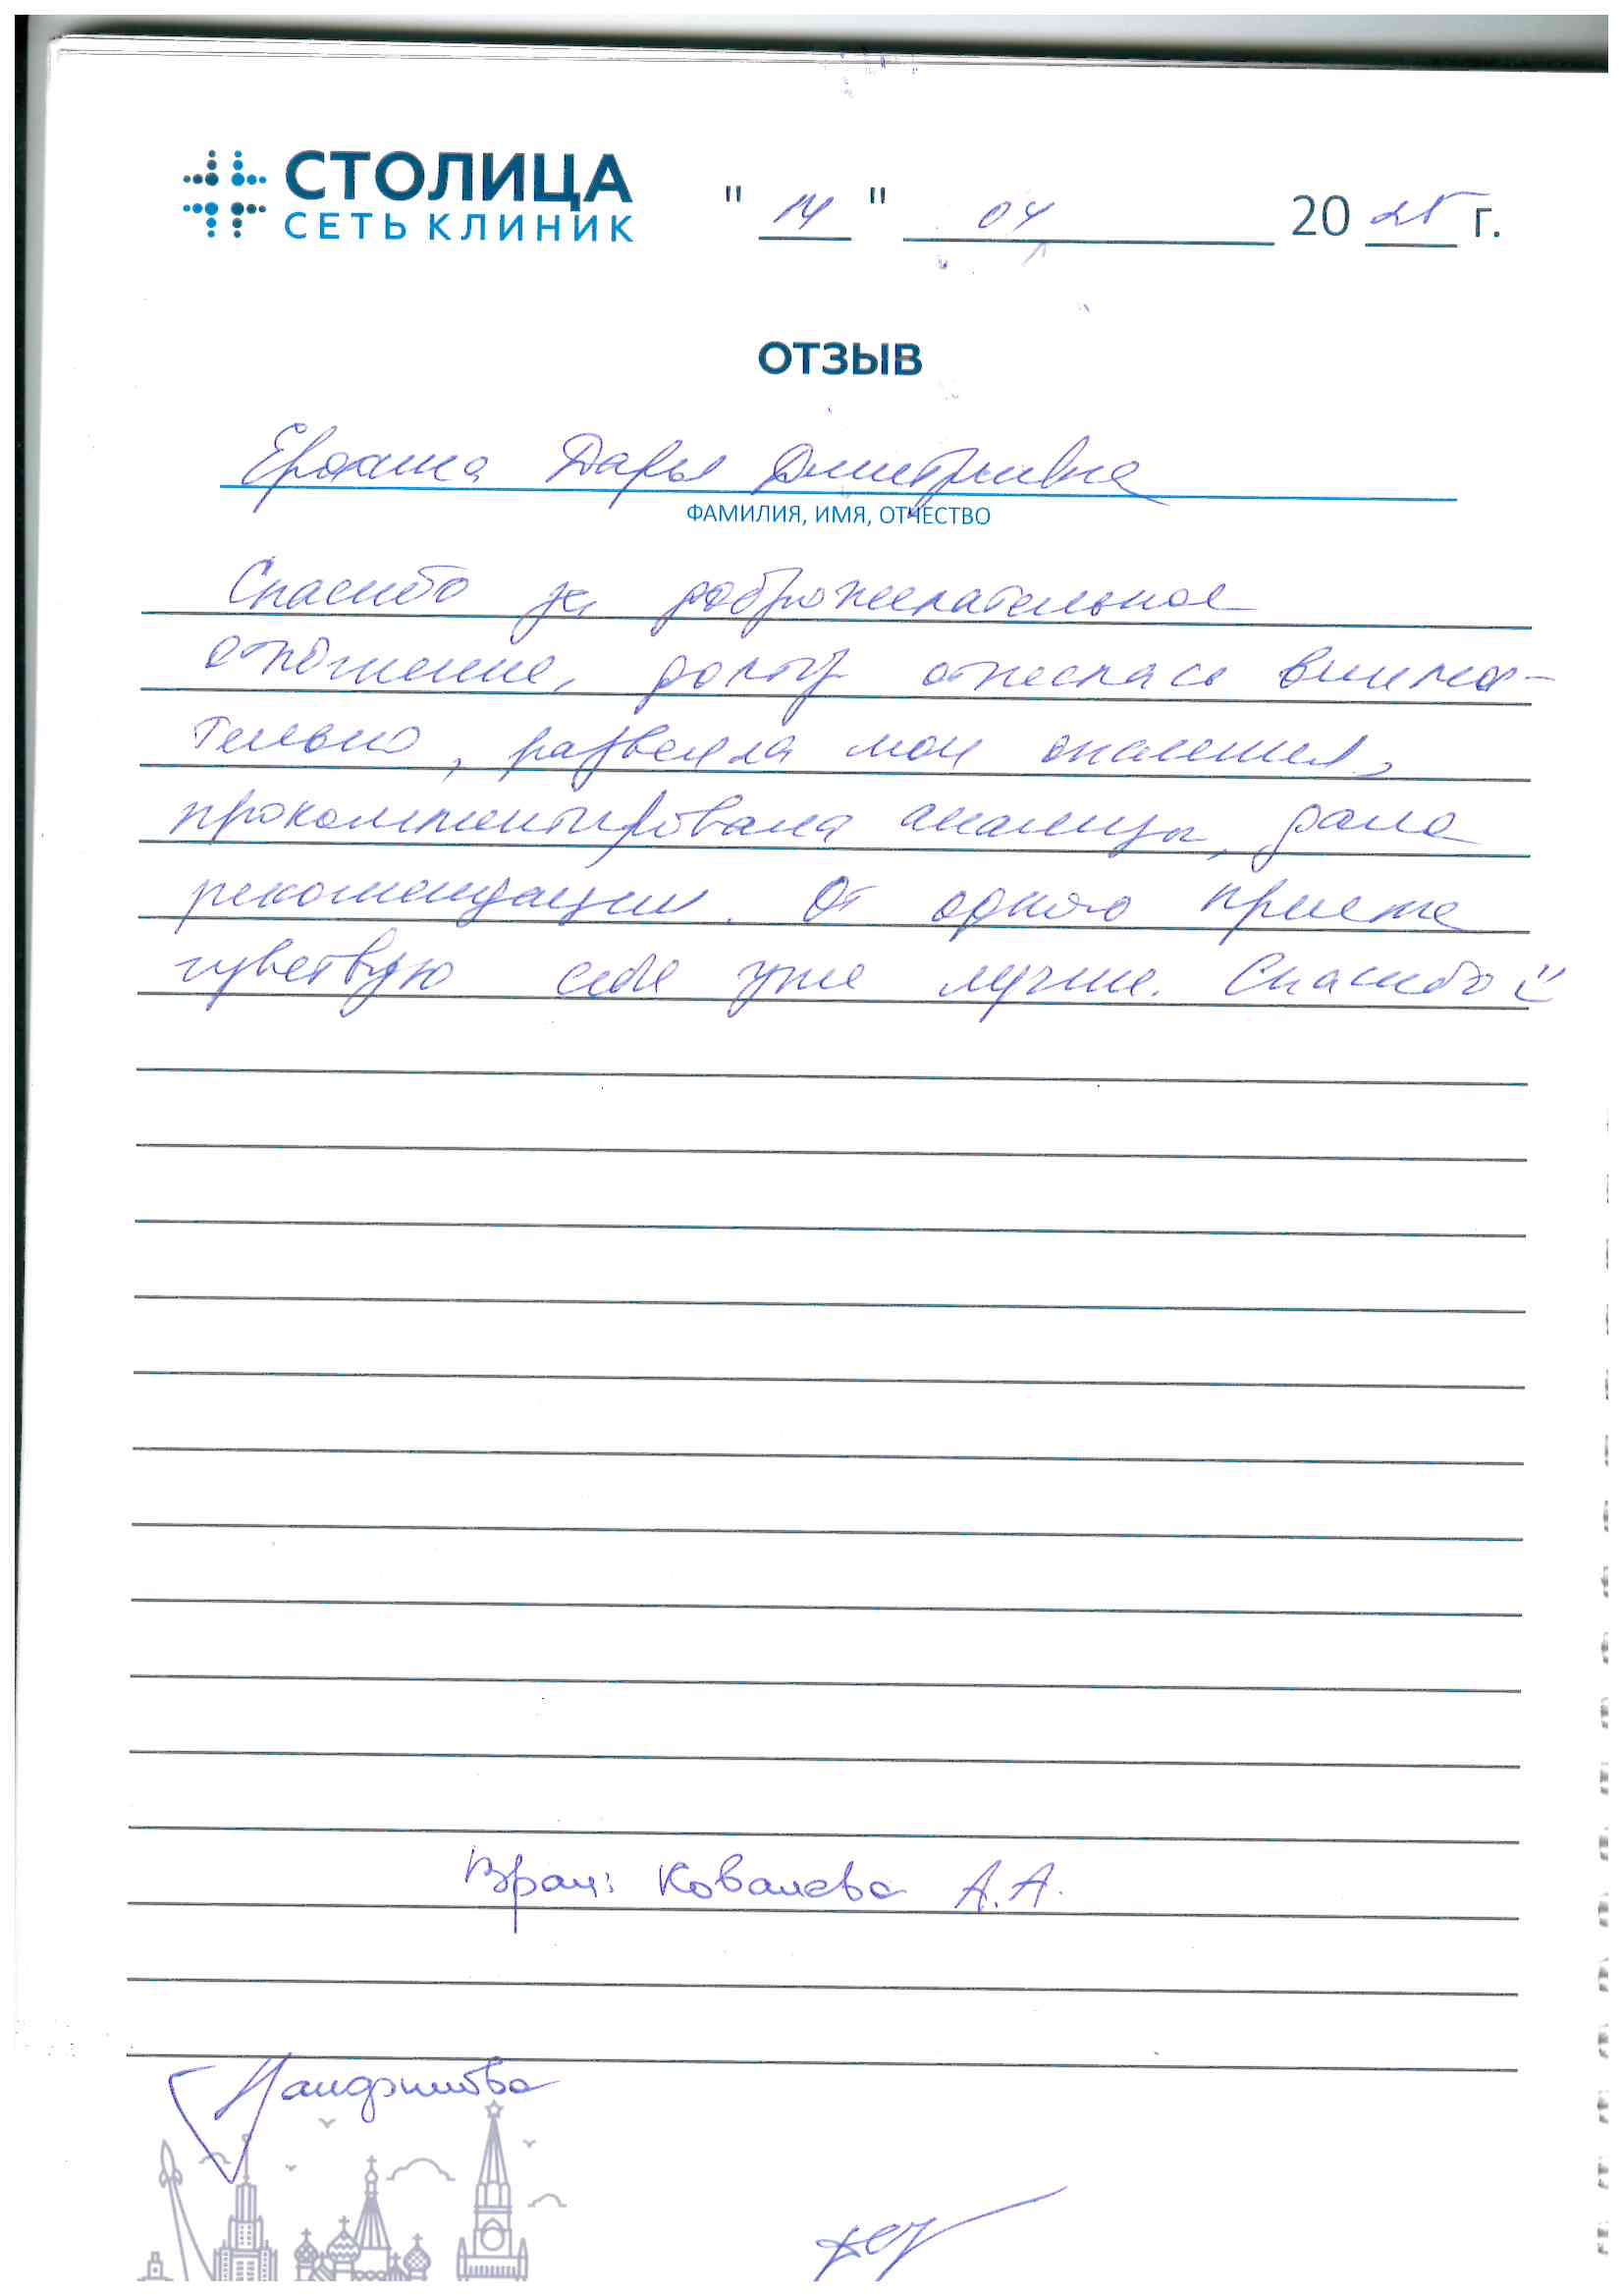 СТОЛИЦА
СЕТЬ КЛИНИК
" 14 " 04 2025 г.
ОТЗЫВ
Дарья Дмитриевна
ФАМИЛИЯ, ИМЯ, ОТЧЕСТВО
Спасибо за доброжелательное
отношение, доктор отнеслась внима-
тельно, развеяла мои опасения,
прокомментировала анализы, дала
рекомендации. От одного приема
чувствую себя уже лучше. Спасибо
Врач: Ковалева А.А.